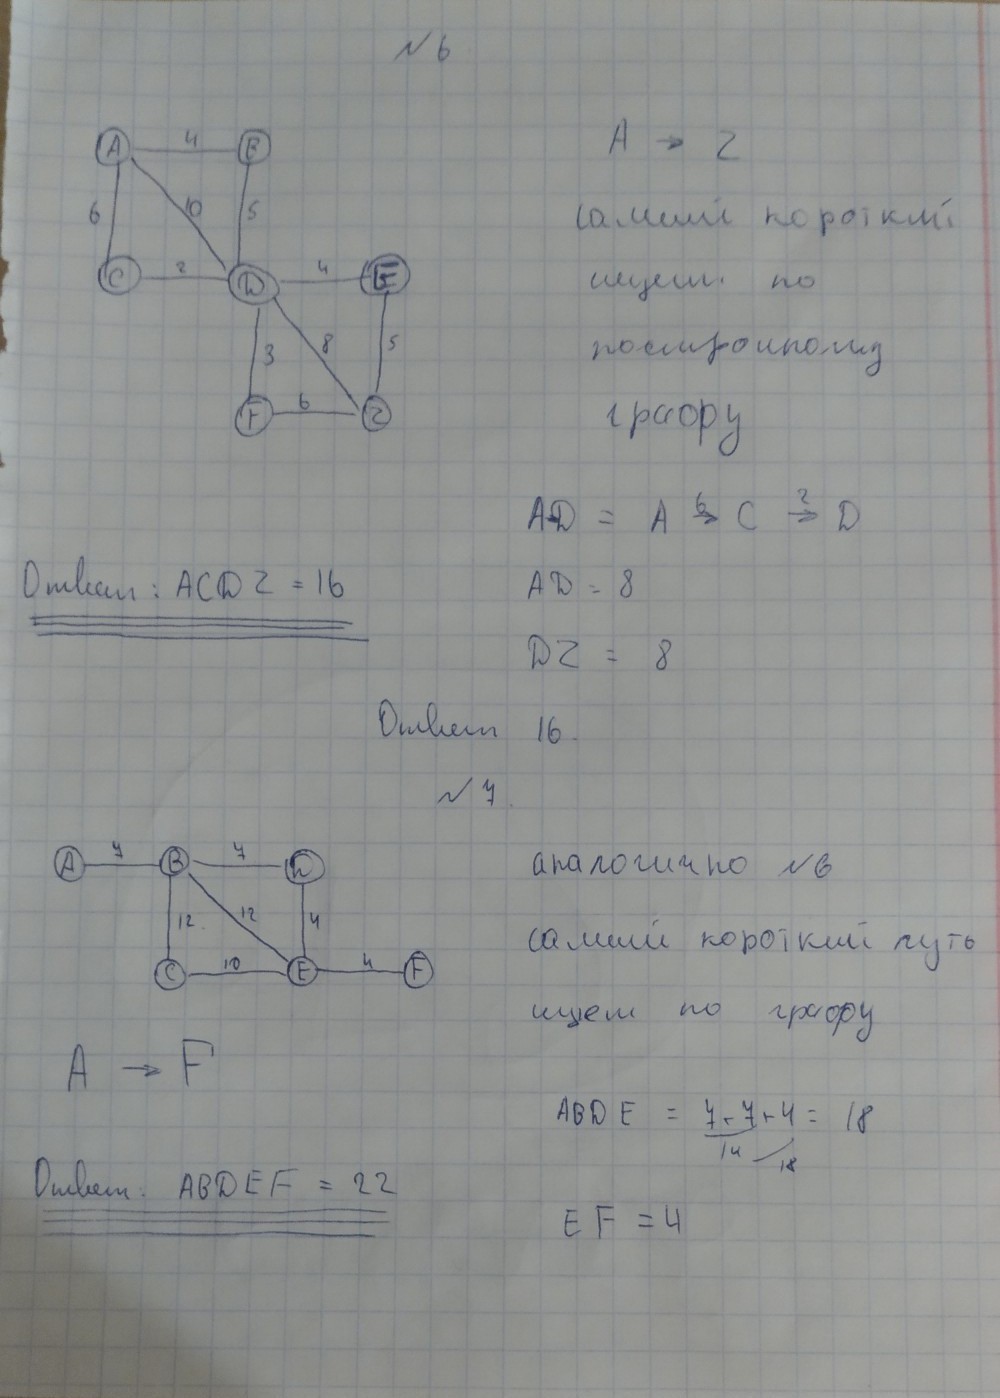 №6
A 4 B
6 10 5
C 2 D 4 E
3 8 5
F 6 Z
A → Z
самый короткий
ищем по
построенному
графу
AD = A 6→ C 2→ D
AD = 8
DZ = 8
Ответ: ACDZ = 16
Ответ 16.
№7.
A 7 B 7 D
12 12 4
C 10 E 4 F
A → F
аналогично №6
самый короткий путь
ищем по графу
ABDE = 7+7+4 = 18
14 18
EF = 4
Ответ: ABDEF = 22